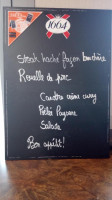 1664
Steak haché façon bouchère
Rouelle de porc
Sauce crème curry
Poêlée Paysanne
Salade
Bon appétit!